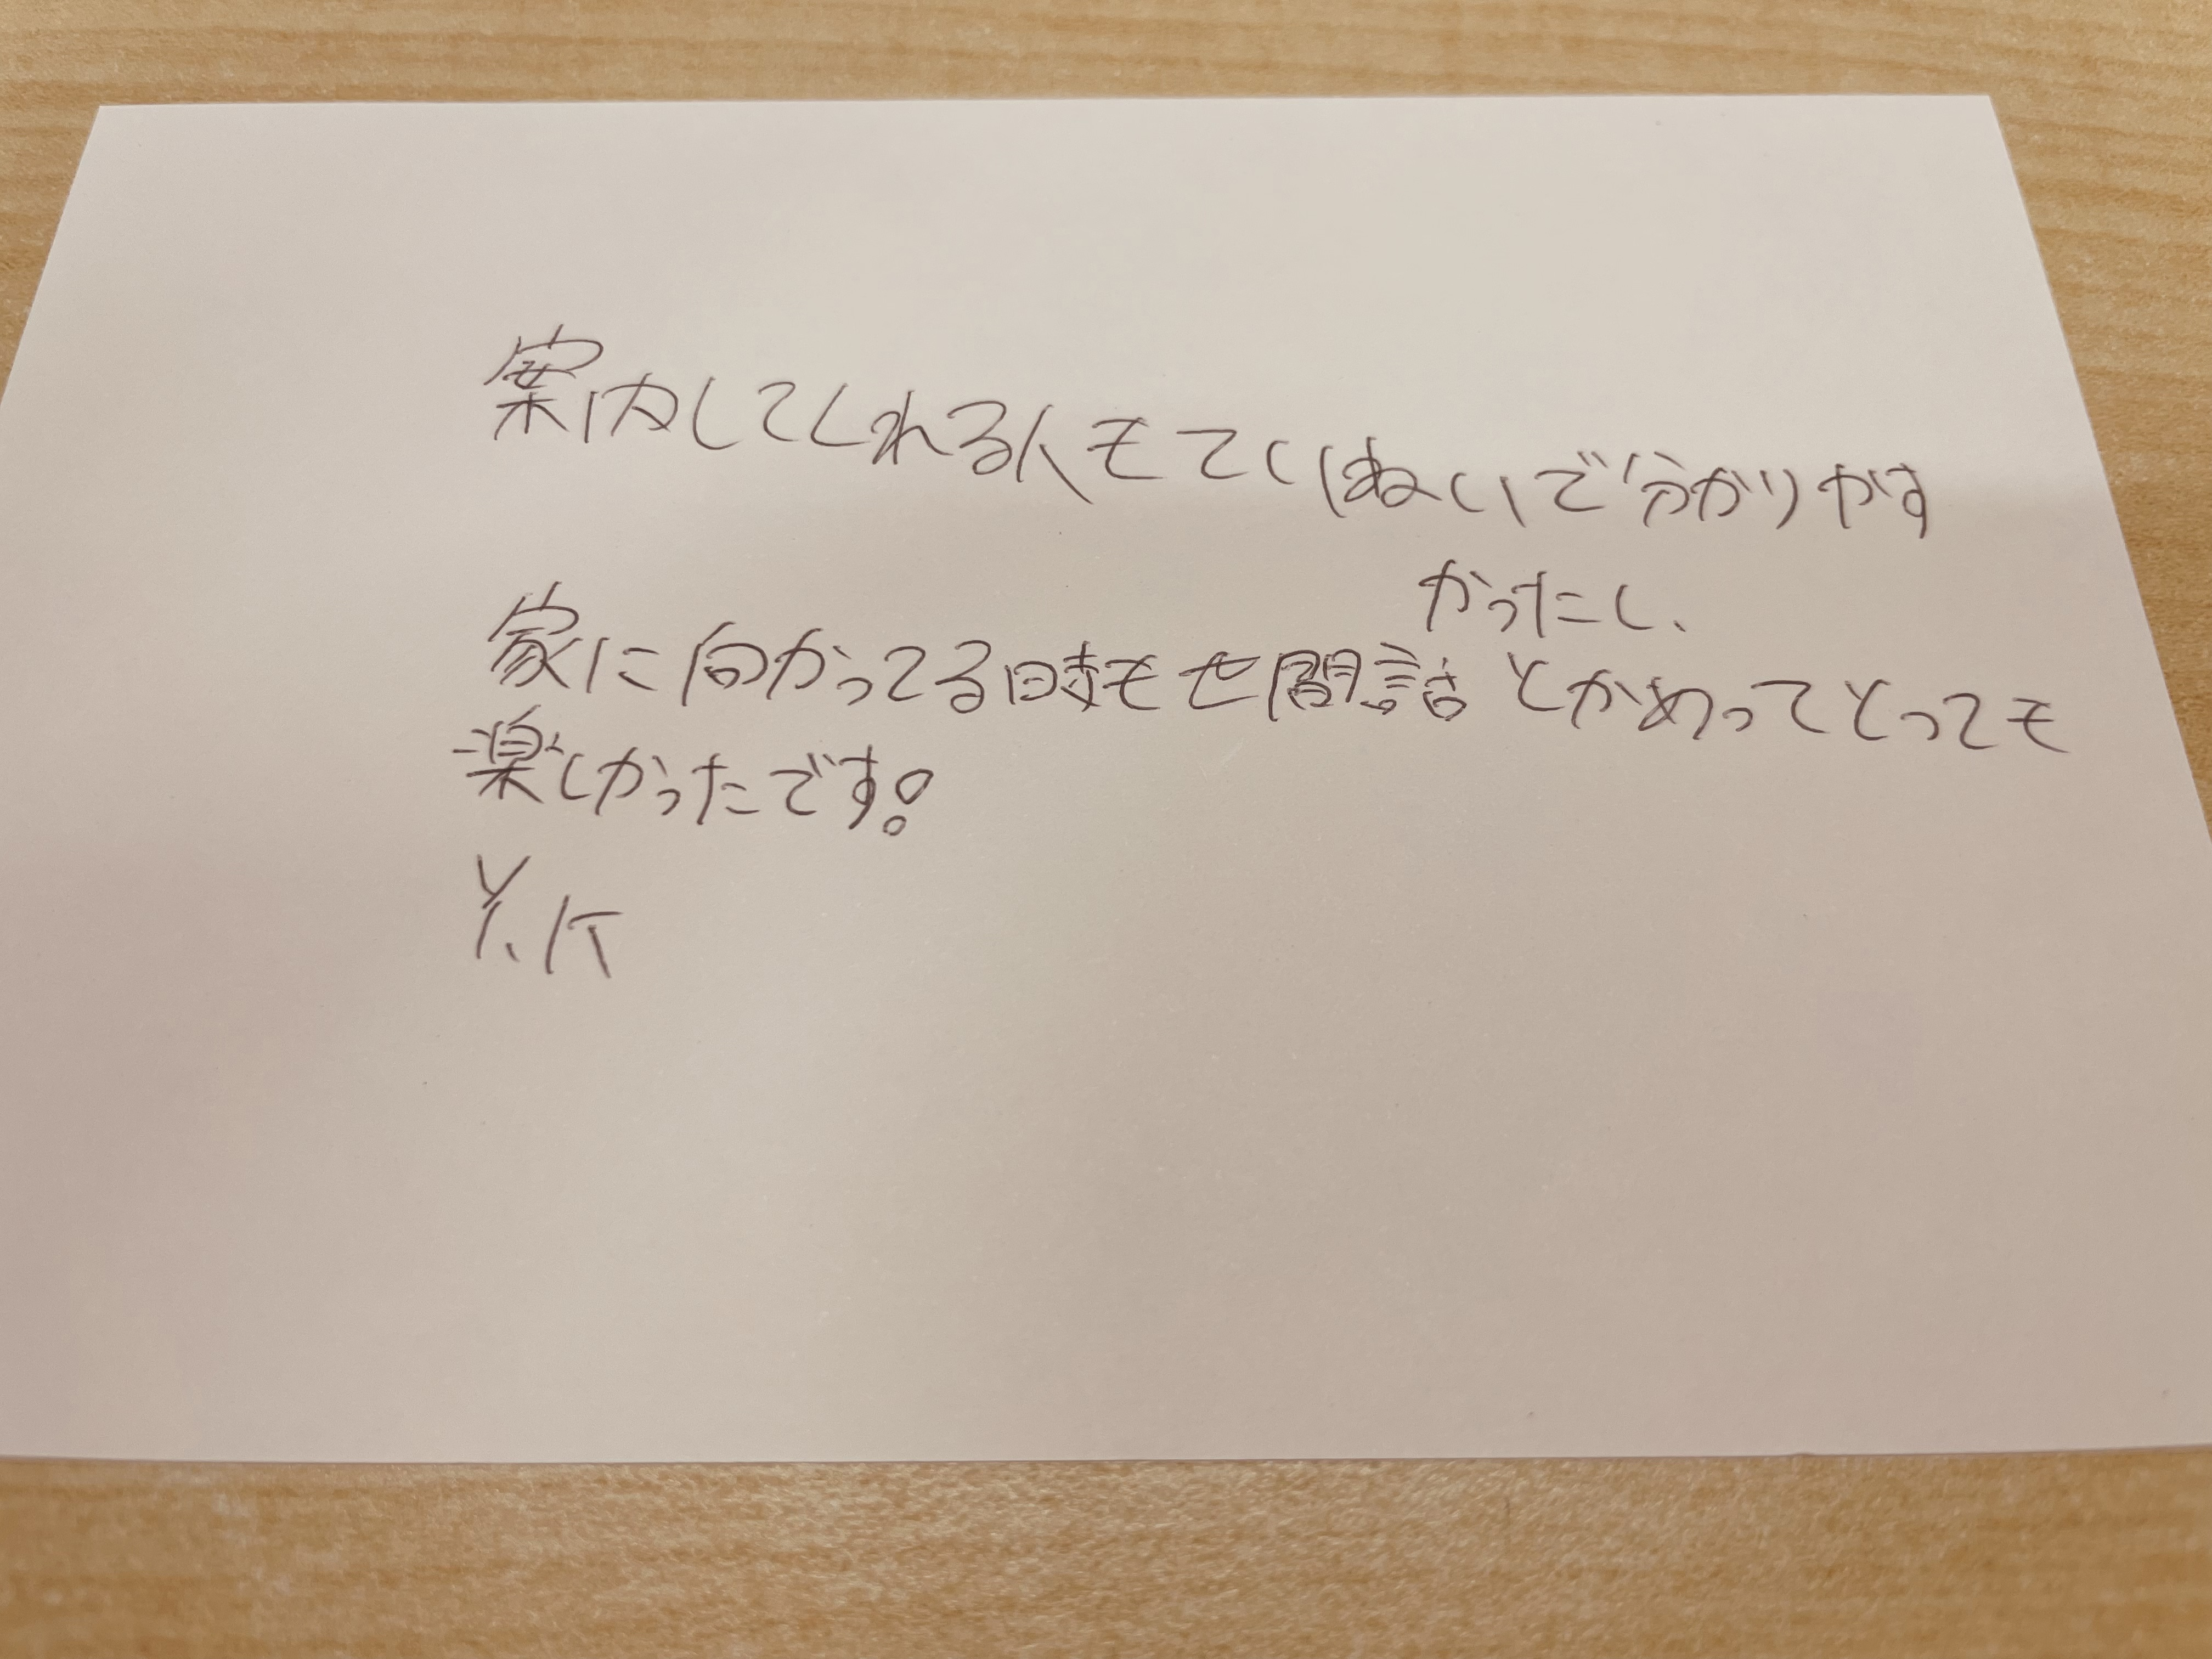 案内してくれる人もていねいで分かりやす
かったし、
家に向かってる時も世間話とかあってとっても
楽しかったです!
Y.K